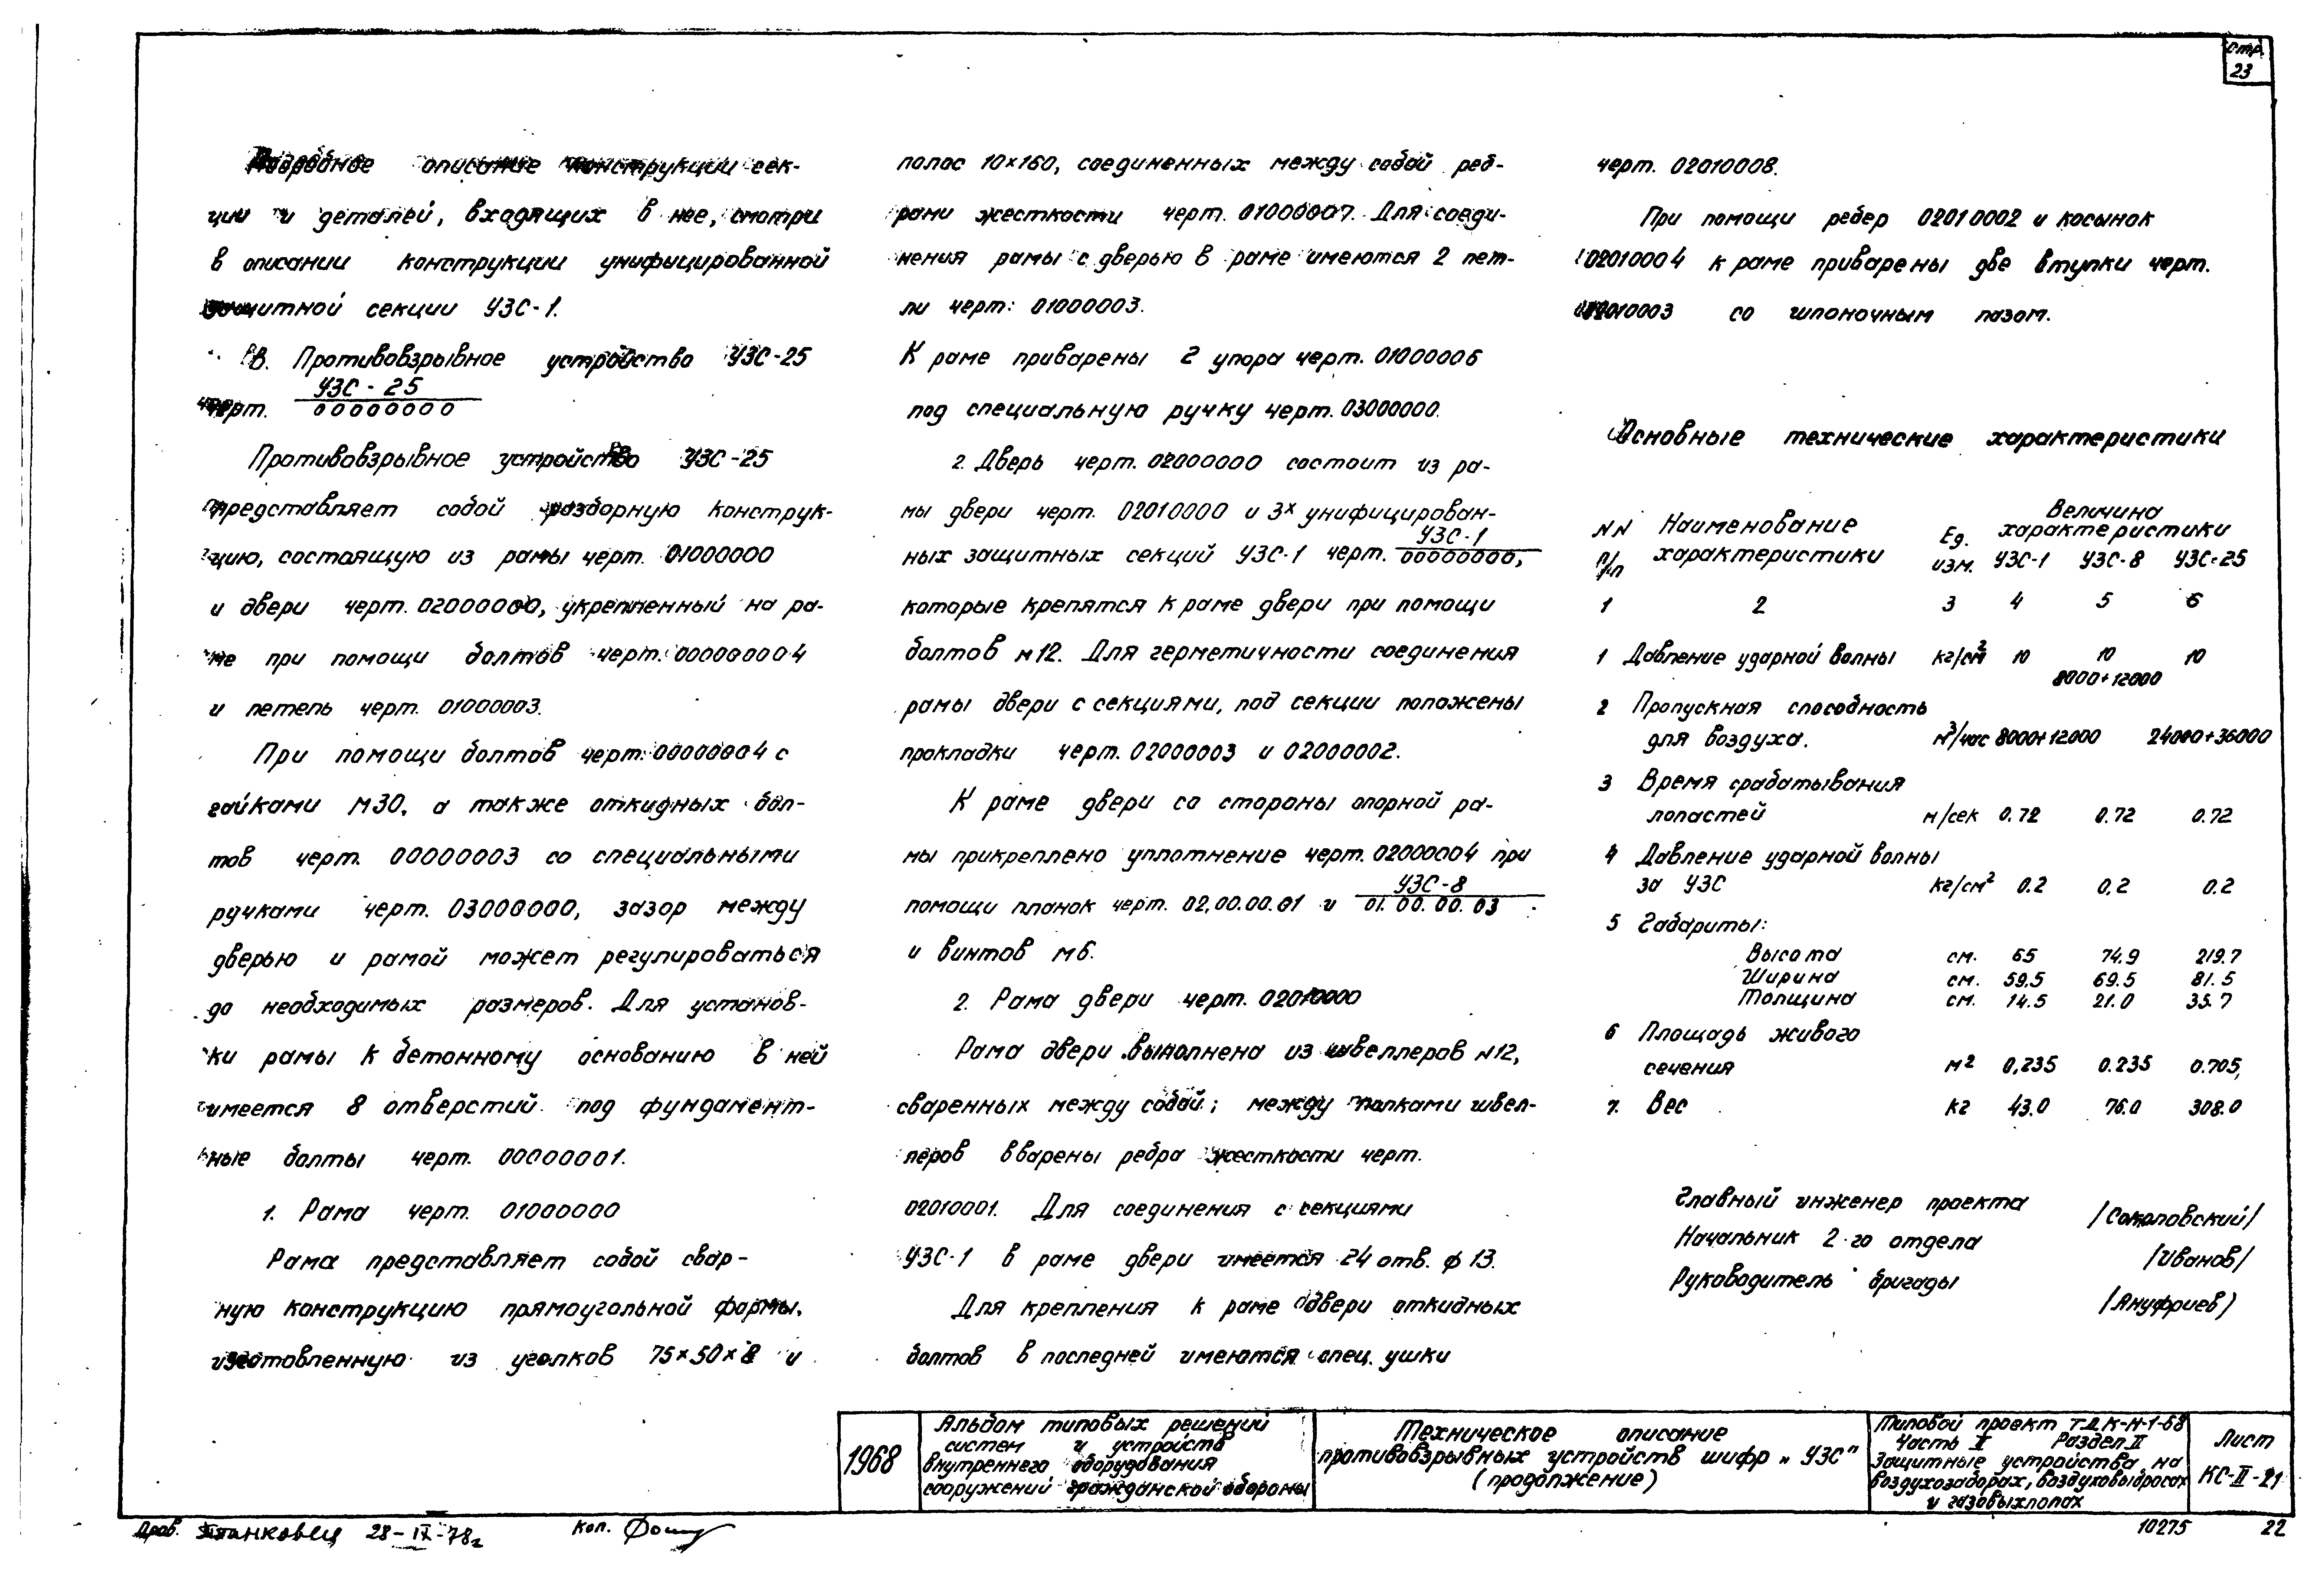 Стр.
23
Подробное описание конструкции сек-
ции и деталей, входящих в нее, смотри
в описании конструкции унифицированной
защитной секции УЗС-1.
В. Противовзрывное устройство УЗС-25
черт. УЗС-25
00000000
Противовзрывное устройство УЗС-25
представляет собой разборную конструк-
цию, состоящую из рамы черт. 01000000
и двери черт. 02000000, укрепленный на ра-
ме при помощи болтов черт. 000000004
и петель черт. 01000003.
При помощи болтов черт. 00000004 с
гайками М30, а также откидных бол-
тов черт. 00000003 со специальными
ручками черт. 03000000, зазор между
дверью и рамой может регулироваться
до необходимых размеров. Для установ-
ки рамы к бетонному основанию в ней
имеется 8 отверстий под фундамент-
ные болты черт. 00000001.
1. Рама черт. 01000000
Рама представляет собой свар-
ную конструкцию прямоугольной формы,
изготовленную из уголков 75×50×8 и
полос 10×160, соединенных между собой реб-
рами жесткости черт. 01000007. Для соеди-
нения рамы с дверью в раме имеются 2 пет-
ли черт: 01000003.
К раме приварены 2 упора черт. 01000006
под специальную ручку черт. 03000000.
2. Дверь черт. 02000000 состоит из ра-
мы двери черт. 02010000 и 3х унифицирован-
ных защитных секций УЗС-1 черт. УЗС-1
00000000,
которые крепятся к раме двери при помощи
болтов м12. Для герметичности соединения
рамы двери с секциями, под секции положены
прокладки черт. 02000003 и 02000002.
К раме двери со стороны опорной ра-
мы прикреплено уплотнение черт. 02000004 при
помощи планок черт. 02.00.00.01 и УЗС-8
01.00.00.03
и винтов м6.
2. Рама двери черт. 02010000
Рама двери выполнена из швеллеров N12,
сваренных между собой; между полками швел-
леров вварены ребра жесткости черт.
02010001. Для соединения с секциями
УЗС-1 в раме двери имеется 24 отв. ф 13.
Для крепления к раме двери откидных
болтов в последней имеются спец. ушки
черт. 02010008.
При помощи ребер 02010002 и косынок
02010004 к раме приварены две втулки черт.
02010003 со шпоночным пазом.
Основные технические характеристики
NN п/п Наименование характеристики Ед. изм. Величина характеристики
УЗС-1 УЗС-8 УЗС-25
1 2 3 4 5 6
1 Давление ударной волны кг/см² 10 10 10
8000÷12000
2 Пропускная способность
для воздуха. м³/час 8000÷12000 24000÷36000
3 Время срабатывания
лопастей м/сек 0.72 0.72 0.72
4 Давление ударной волны
за УЗС кг/см² 0.2 0,2 0.2
5 Габариты:
Высота см. 65 74.9 219.7
Ширина см. 59.5 69.5 81.5
Толщина см. 14.5 21.0 35.7
6 Площадь живого
сечения м2 0,235 0.235 0.705,
7. Вес кг 43.0 76.0 308.0
Главный инженер проекта /Соколовский/
Начальник 2-го отдела /Иванов/
Руководитель бригады /Ануфриев)
1968
Альбом типовых решений
систем и устройств
внутреннего оборудования
сооружений гражданской обороны
Техническое описание
противовзрывных устройств шифр „УЗС"
(продолжение)
Типовой проект Т-ДК-Н-1-68
Часть I Раздел II
Защитные устройства на
воздухозаборах, воздуховыбросах
и газовыхлопах
Лист
КС-II-21
28-IX-78г
Коп.
10275 22